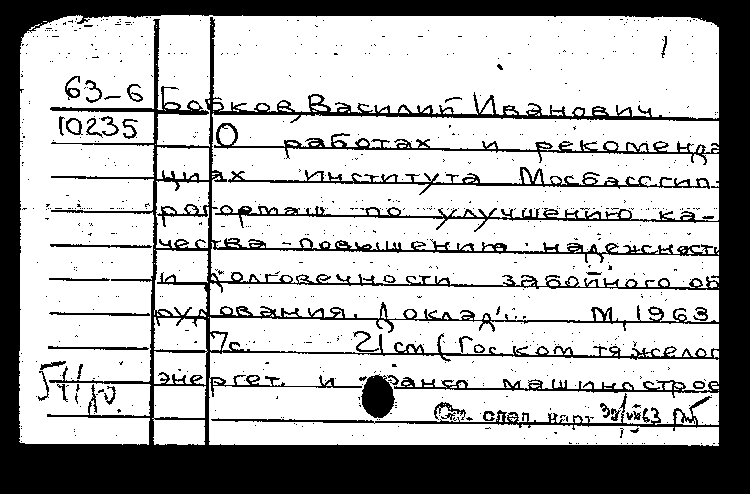 1
63-6 Бобков, Василий Иванович.
10235 О работах и рекоменда
циях института Мосбассгип-
рогормаш по улучшению ка-
чества - повышению надежности
и долговечности забойного об
рудования. Доклад... М., 1963.
7с. 21см (Гос. ком. тяжелог
энергет. и трансп машинострое
См. след. карт